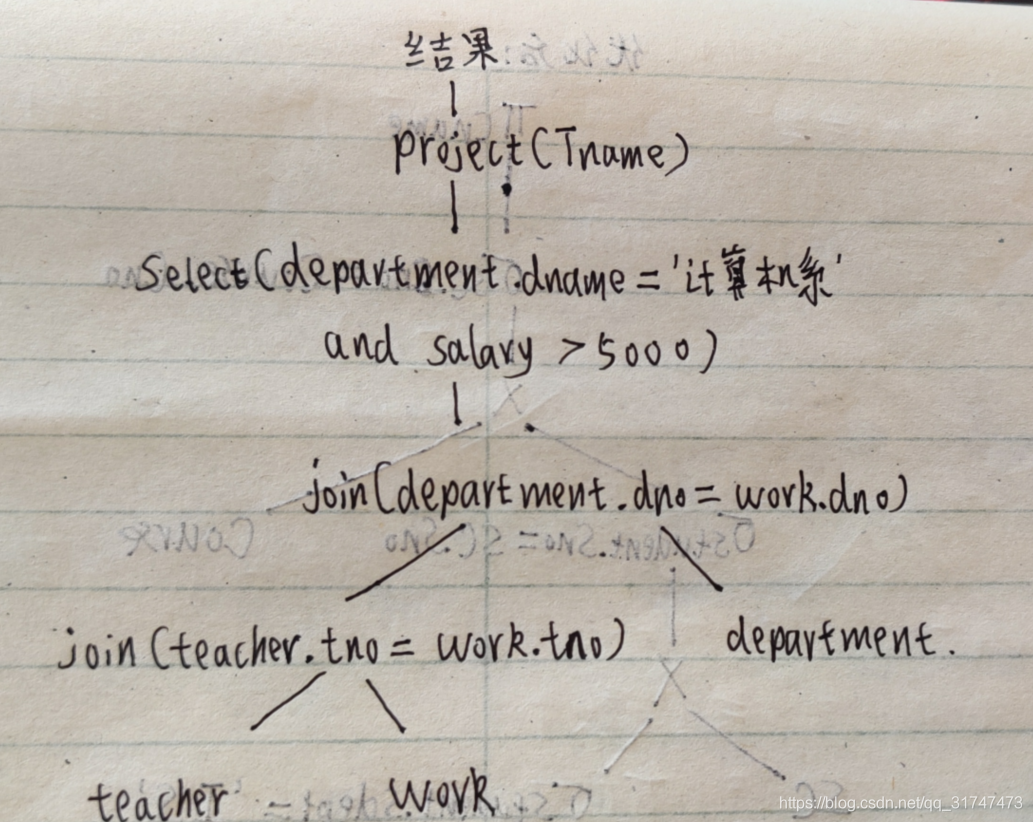 结果
project(Tname)
Select(department.dname='计算机系'
and salary >5000)
join(department.dno= work.dno)
join(teacher.tno= work.tno) department.
teacher work
https://blog.csdn.net/qq_31747473